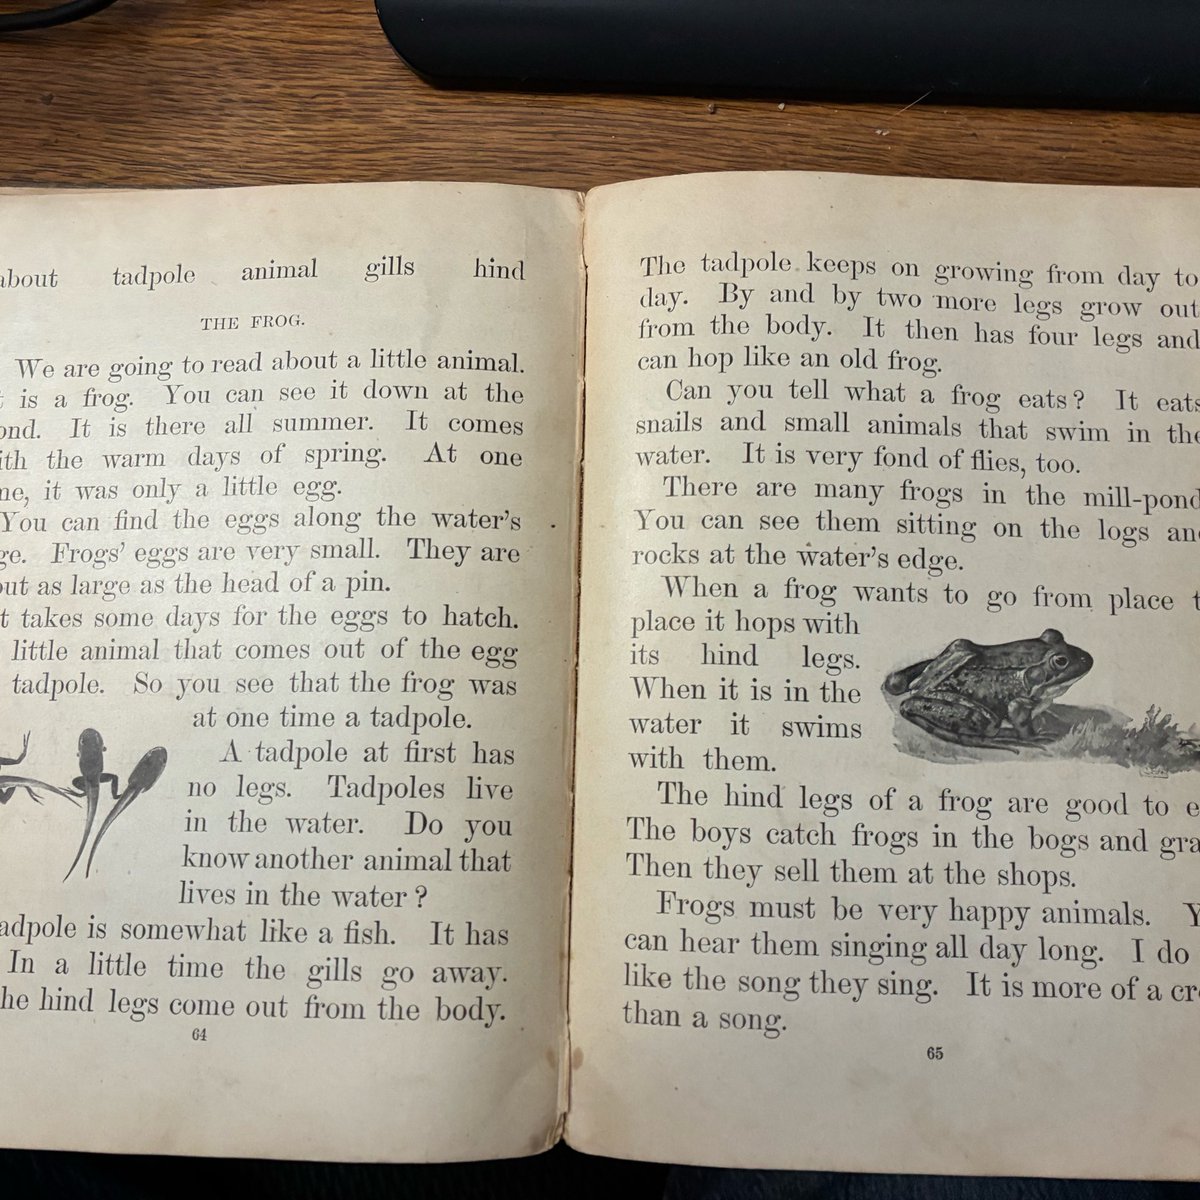 about tadpole animal gills hind
THE FROG.
We are going to read about a little animal.
is a frog. You can see it down at the
It is there all summer. It comes
the warm days of spring. At one
it was only a little egg.
You can find the eggs along the water's
Frogs' eggs are very small. They are
as large as the head of a pin.
takes some days for the eggs to hatch.
little animal that comes out of the egg
tadpole. So you see that the frog was
at one time a tadpole.
A tadpole at first has
no legs. Tadpoles live
in the water. Do you
know another animal that
lives in the water?
is somewhat like a fish. It has
In a little time the gills go away.
hind legs come out from the body.
64
The tadpole keeps on growing from day to
day. By and by two more legs grow out
from the body. It then has four legs and
can hop like an old frog.
Can you tell what a frog eats? It eats
snails and small animals that swim in the
water. It is very fond of flies, too.
There are many frogs in the mill-pond
You can see them sitting on the logs and
rocks at the water's edge.
When a frog wants to go from place
place it hops with
its hind legs.
When it is in the
water it swims
with them.
The hind legs of a frog are good to
The boys catch frogs in the bogs and
Then they sell them at the shops.
Frogs must be very happy animals.
can hear them singing all day long. I do
like the song they sing. It is more of a
than a song.
65